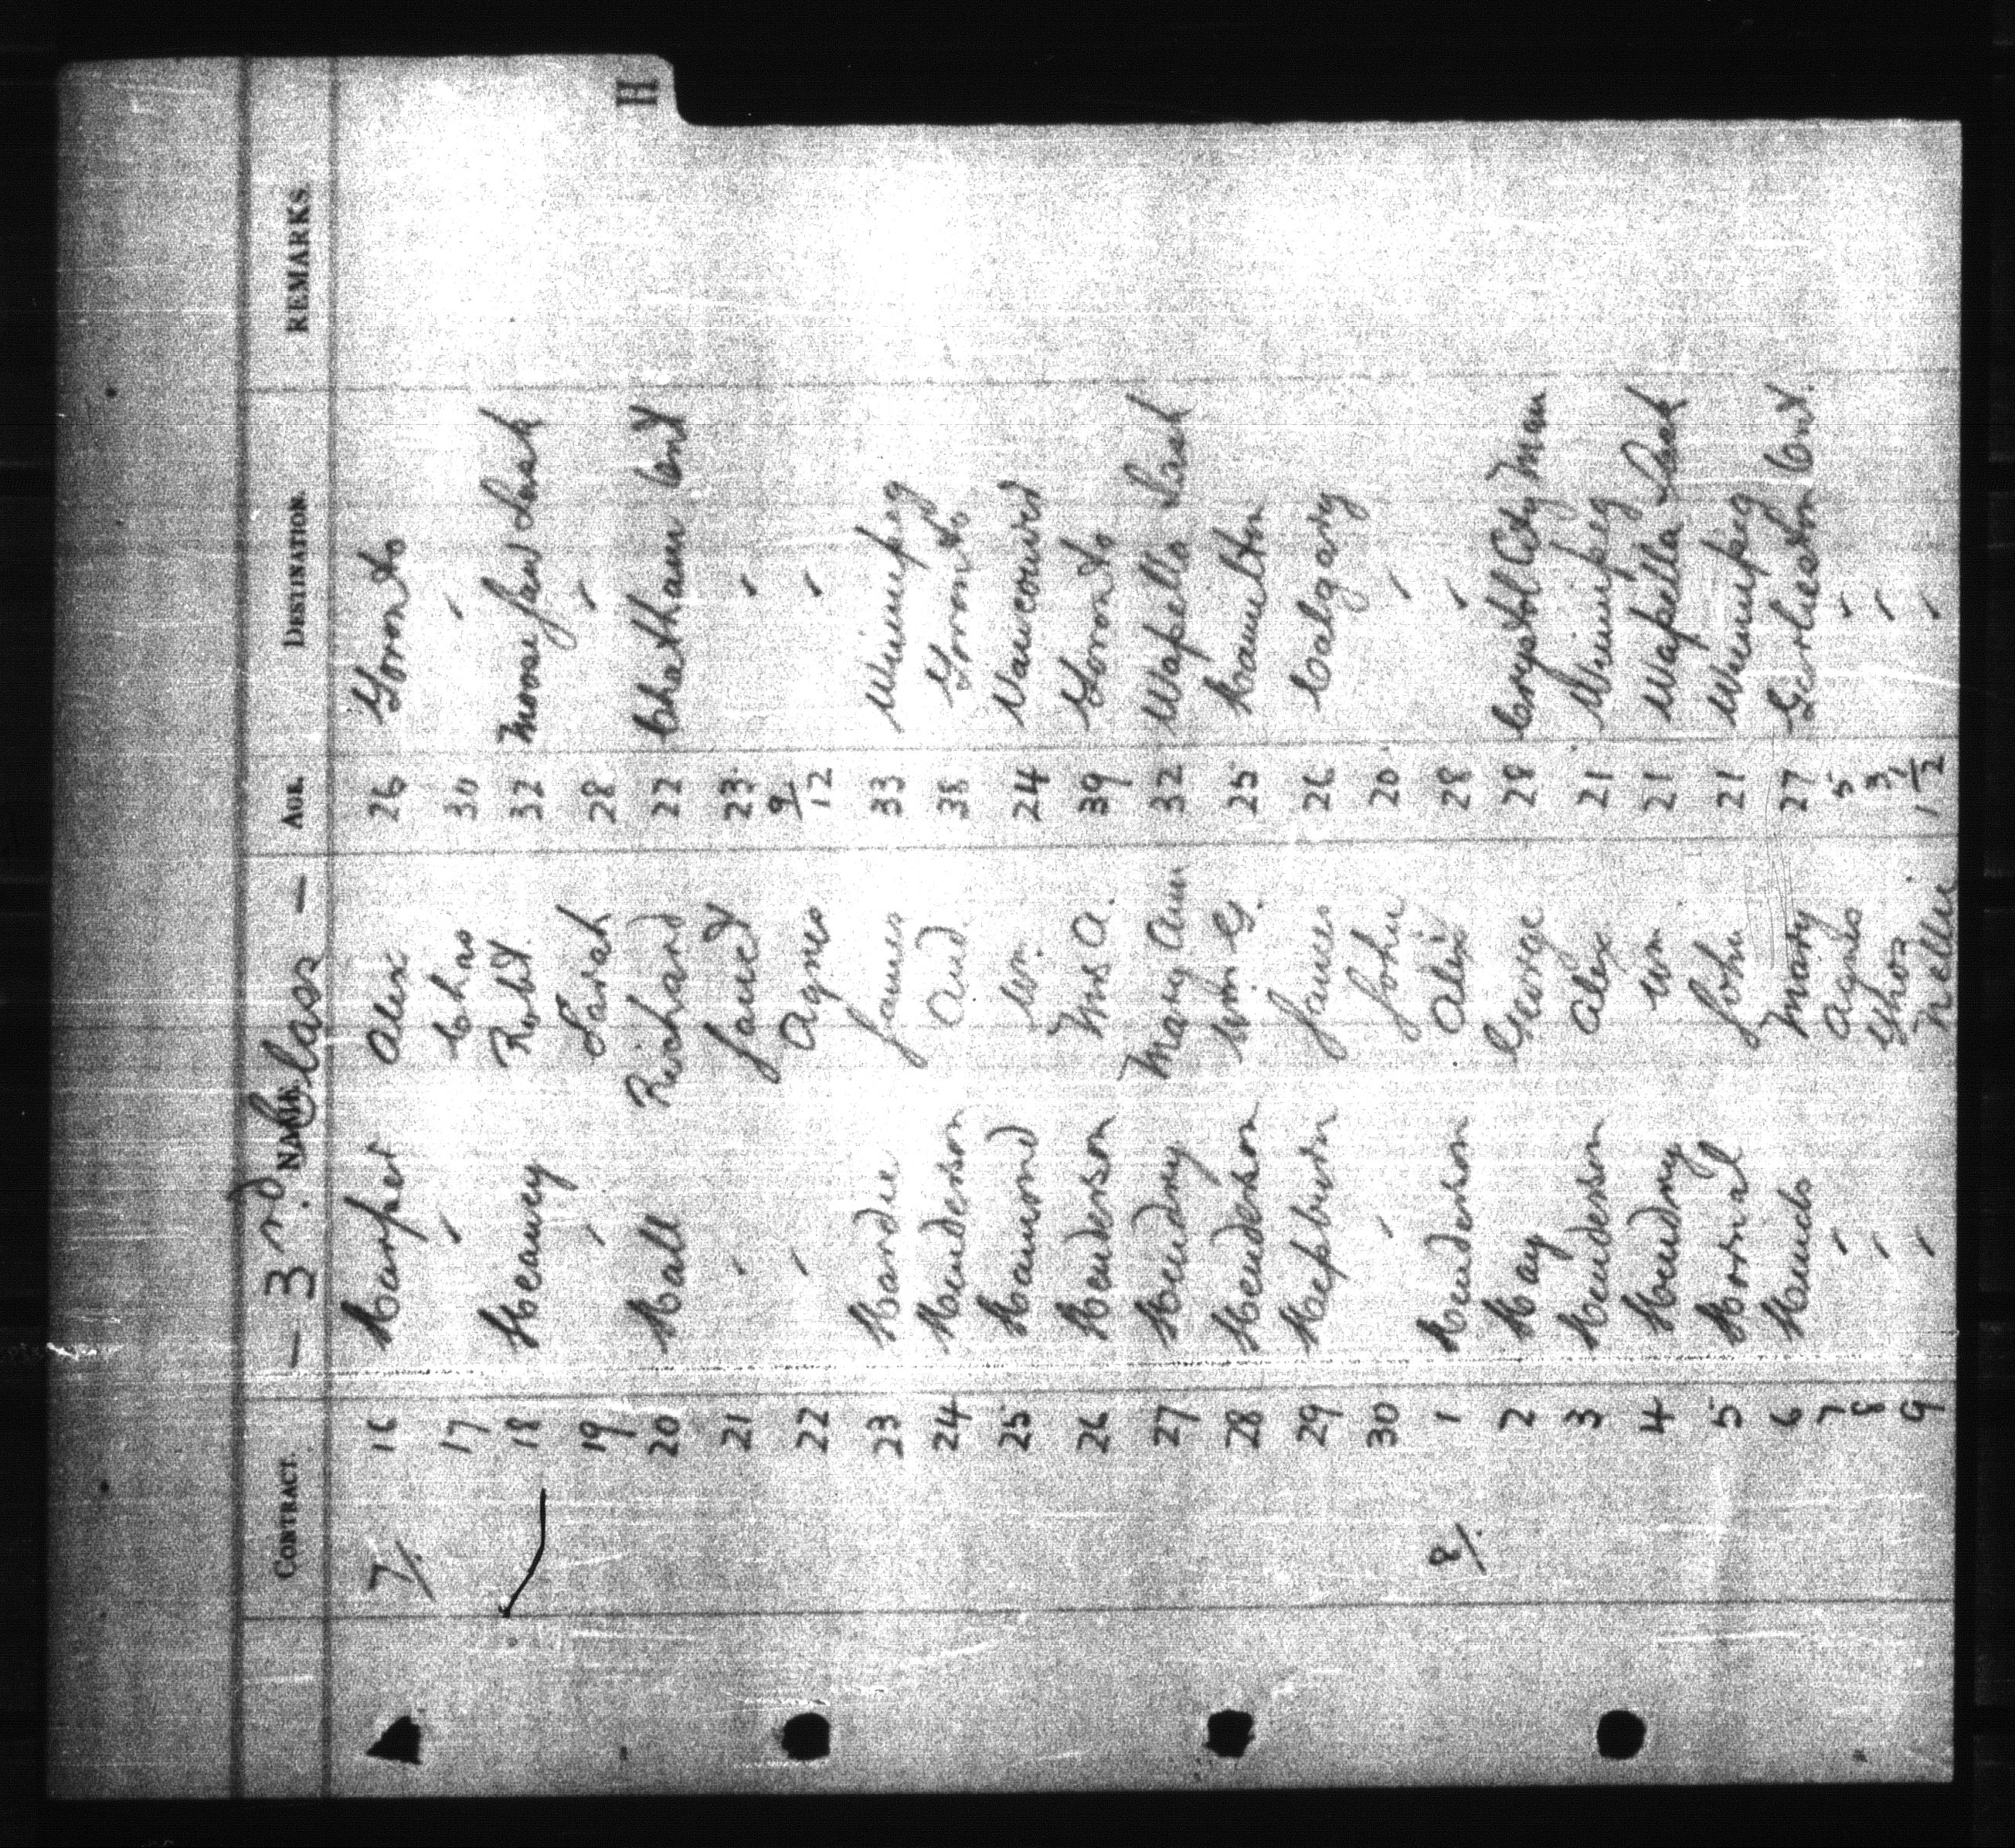 H
— 3rd. Class —
CONTRACT. NAME. AGE. DESTINATION. REMARKS.
7/. 16 Harper Alex 26 Toronto
17 " Chas 30 "
18 Heaney Robt. 32 Moose Jaw Sask
19 " Sarah 28 "
20 Hall Richard 22 Chatham Ont
21 " Janet 23 "
22 " Agnes 9/12 "
23 Hardie James 33 Winnipeg
24 Henderson And. 38 Toronto
25 Hamond Wm. 24 Vancouver
26 Henderson Mrs A. 39 Toronto
27 Hendry Mary Ann 32 Wapella Sask
28 Henderson Wm G. 25 Hamilton
29 Hepburn James 26 Calgary
30 " John 20 "
8/. 1 Henderson Alex 28 "
2 Hay George 28 Crystol City Man
3 Henderson Alex 21 Winnipeg
4 Hendry Wm 21 Wapella Sask
5 Horral John 21 Winnipeg
6 Hinds Mary 27 Ont.
7 " Agnes 5 "
8 " Thos 3 "
9 " Nellie 1 1/2 "